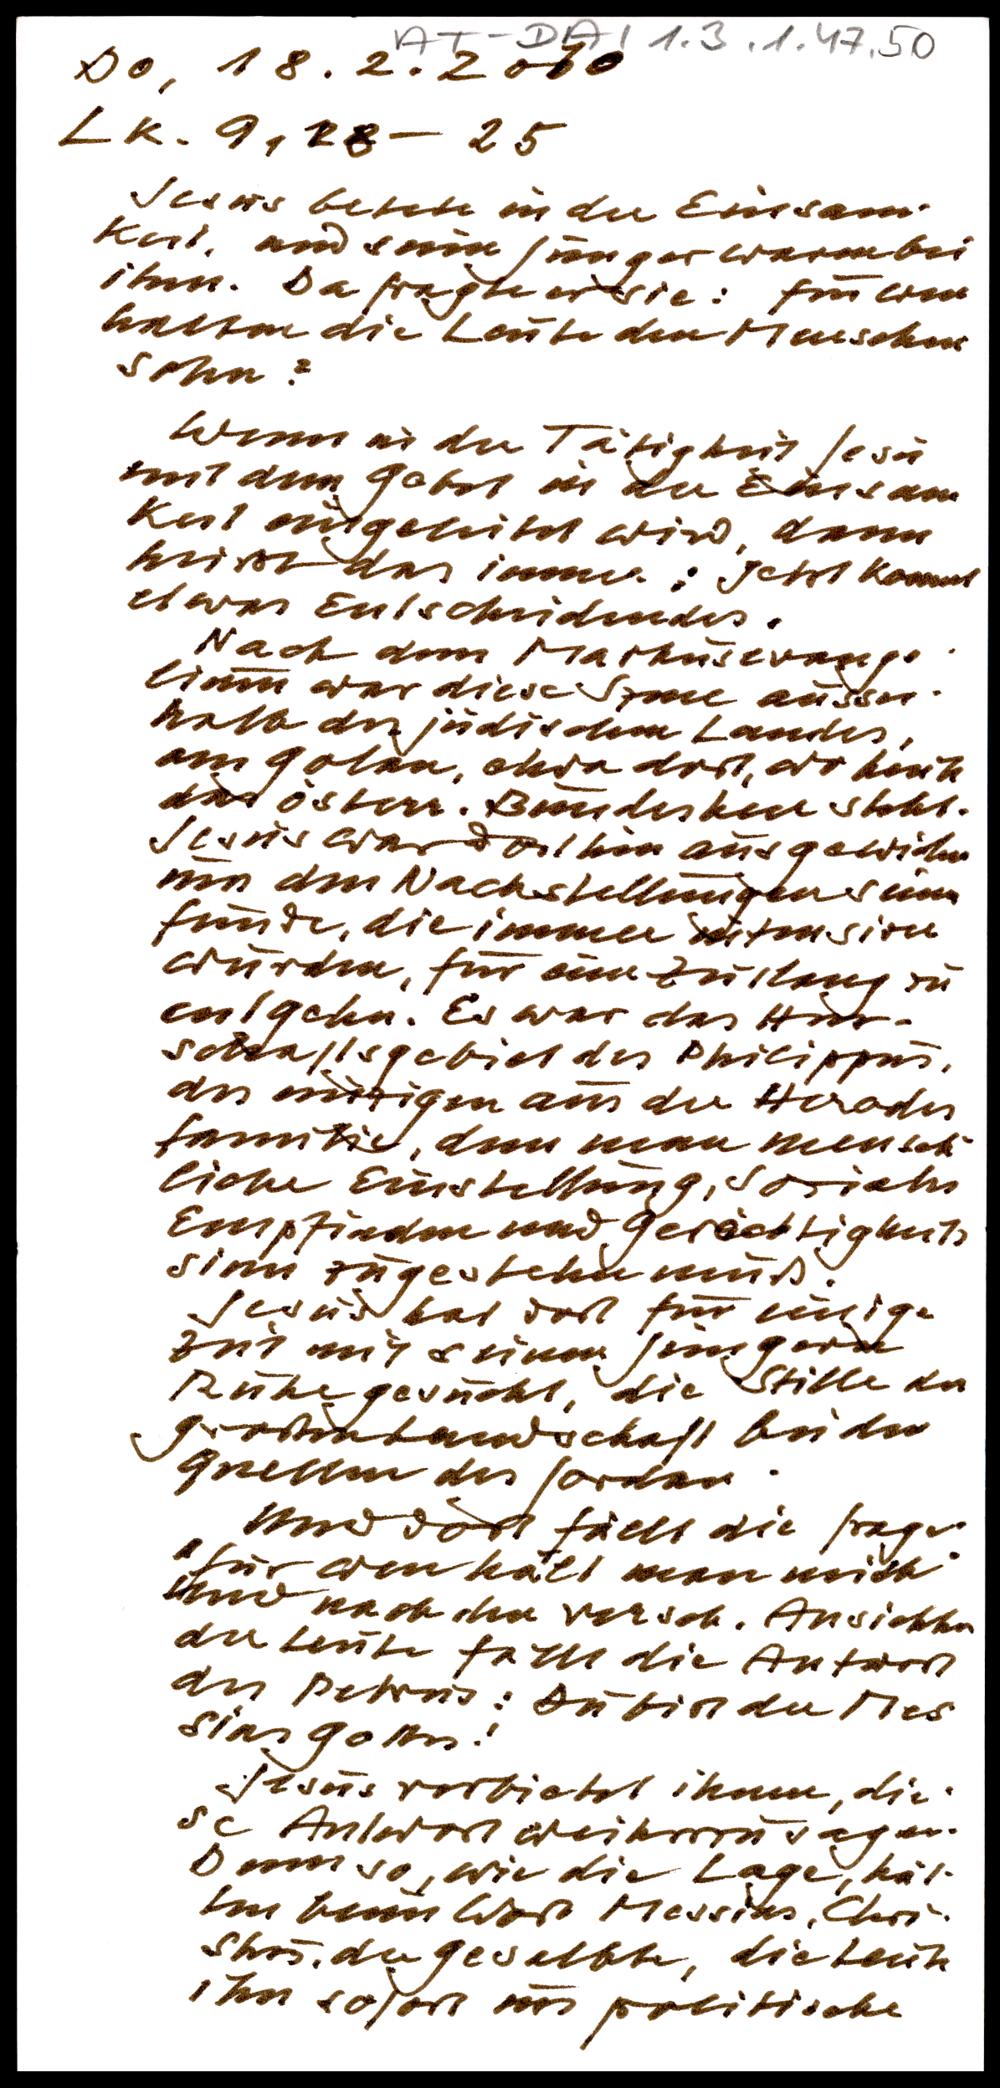 AT-DAI 1.3.1.47.50
Do, 18.2.2010
Lk. 9, 18 — 25
Jesus betete in der Einsam-
keit, und seine Jünger waren bei
ihm. Da fragte er sie: Für wen
halten die Leute den Menschen
sohn?
Wenn in der Tätigkeit Jesu
mit dem Gebet in der Einsam
keit eingeleitet wird, dann
heisst das immer: Jetzt kommt
etwas Entscheidendes.
Nach dem Markusevange-
lium war diese Szene ausser-
halb des jüdischen Landes,
am Golan, etwa dort, wo heute
das österr. Bundesheer steht.
Jesus war dorthin ausgewichen
um den Nachstellungen seiner
Feinde, die immer intensiver
wurden, für eine Zeitlang zu
entgehn. Es war das Herr-
schaftsgebiet des Philippus,
des einzigen aus der Herodes
familie, dem man mensch
liche Einstellung, soziales
Empfinden und Gerechtigkeits
sinn zugestehn muß.
Jesus hat dort für einige
Zeit mit seinen Jüngern
Ruhe gesucht, die Stille der
großen Landschaft bei den
Quellen des Jordan.
Und dort fällt die Frage
"Für wen hält man mich"
Und nach den versch. Ansichten
der Leute fällt die Antwort
des Petrus: Du bist der Mes
sias Gottes!
Jesus verbietet ihnen, die-
se Antwort weiterzusagen.
Denn so, wie die Lage, hät-
ten beim Wort Messias, Chri-
stus, der Gesalbte, die Leute
ihn sofort ins politische